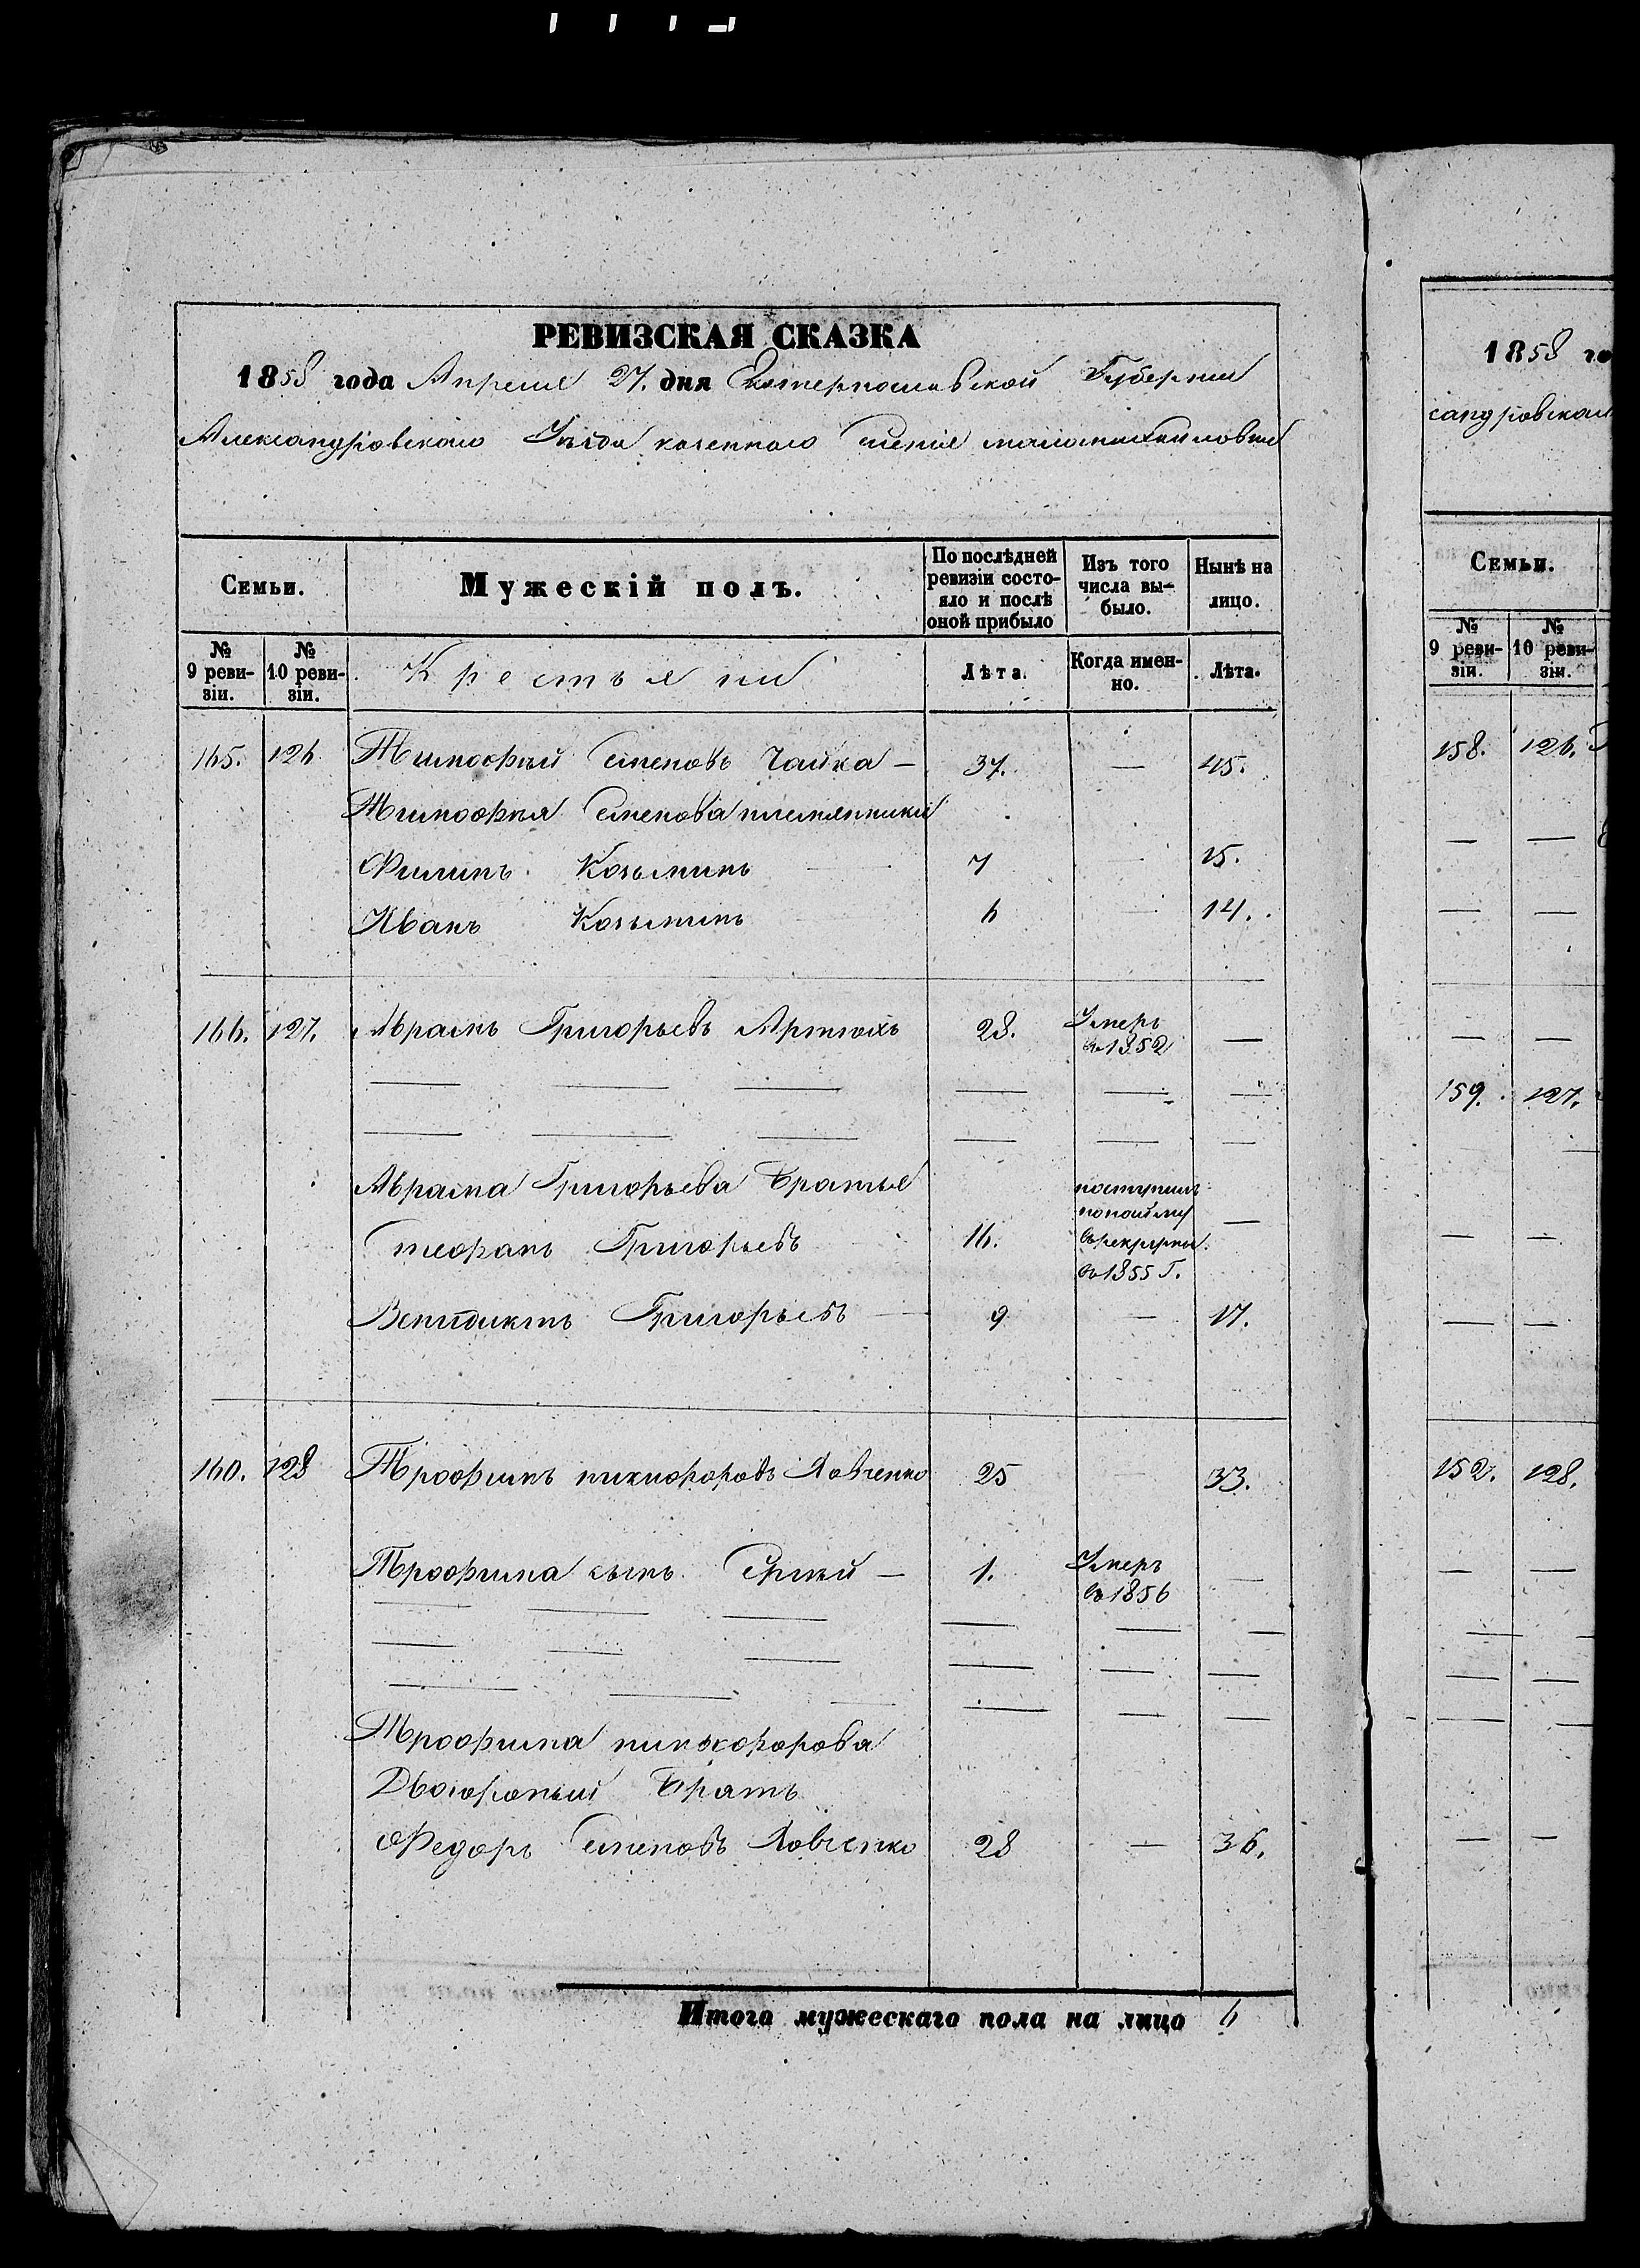 РЕВИЗСКАЯ СКАЗКА
1858 года Апреля 27. дня Екатеринославской Губернии
Александровского Уезда казенного селенія маломихайловки
Семьи.
Мужескій полъ.
По послѣдней ревизіи состо-
яло и послѣ
оной прибыло
Изъ того
числа вы-
было.
Нынѣ на
лицо.
№
9 реви-
зіи.
№
10 реви-
зіи.
Крестьяни
Лѣта.
Когда имен-
но.
Лѣта.
165. 126 Тимофѣй Семеновъ Чайка — 37. — 45.
Тимофѣя Семенова племянники
Филипъ Козьминъ 7 — 15.
Иванъ Козьминъ 6 — 14.
166. 127. Абрамъ Григорьевъ Артюхъ 28. Умеръ
въ 1852 —
Абрама Григорьева Братья
Стефанъ Григорьевъ 16. поступилъ
понайму
врекруты
въ 1855 Г. —
Венидиктъ Григорьевъ 9 — 17.
160. 128 Трофимъ никифоровъ Ловченко 25 — 33.
Трофима сынъ Сергѣй — 1. Умеръ
въ 1856 —
Трофима никифорова
Двоюроный Братъ
Федоръ Семеновъ Ловченко 28 — 36.
Итого мужескаго пола на лицо 6
1858 го
сандровского
Семьи.
№
9 реви-
зіи.
№
10 реви-
зіи.
158. 126.
159. 127.
152. 128.